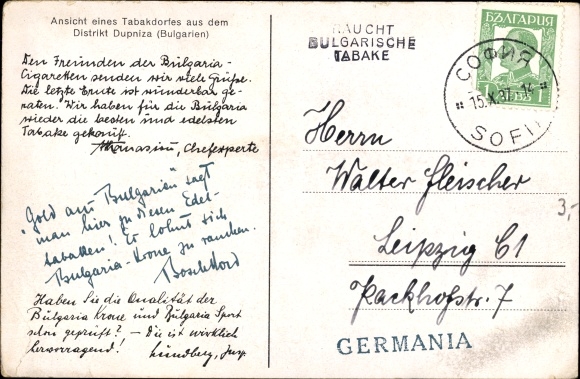 Ansicht eines Tabakdorfes aus dem
Distrikt Dupniza (Bulgarien)
Den Freunden der Bulgaria-
Cigaretten senden wir viele Grüße.
Die letzte Ernte ist wunderbar ge-
raten. Wir haben für die Bulgaria
wieder die besten und edelsten
Tabake gekauft.
Athanasiou, Chefexperte
"Gold aus Bulgarien" sagt
man hier zu diesen Edel-
tabaken! Es lohnt sich
Bulgaria-Krone zu rauchen.
Haben Sie die Qualität der
Bulgaria Krone und Bulgaria Sport
schon geprüft? - Die ist wirklich
hervorragend! Lundberg, Insp.
RAUCHT
BULGARISCHE
TABAKE
БЪЛГАРИЯ
СОФИЯ
15.X.37.14
SOFIA
Herrn
Walter Fleischer
Leipzig C1
Packhofstr. 7
3,-
GERMANIA